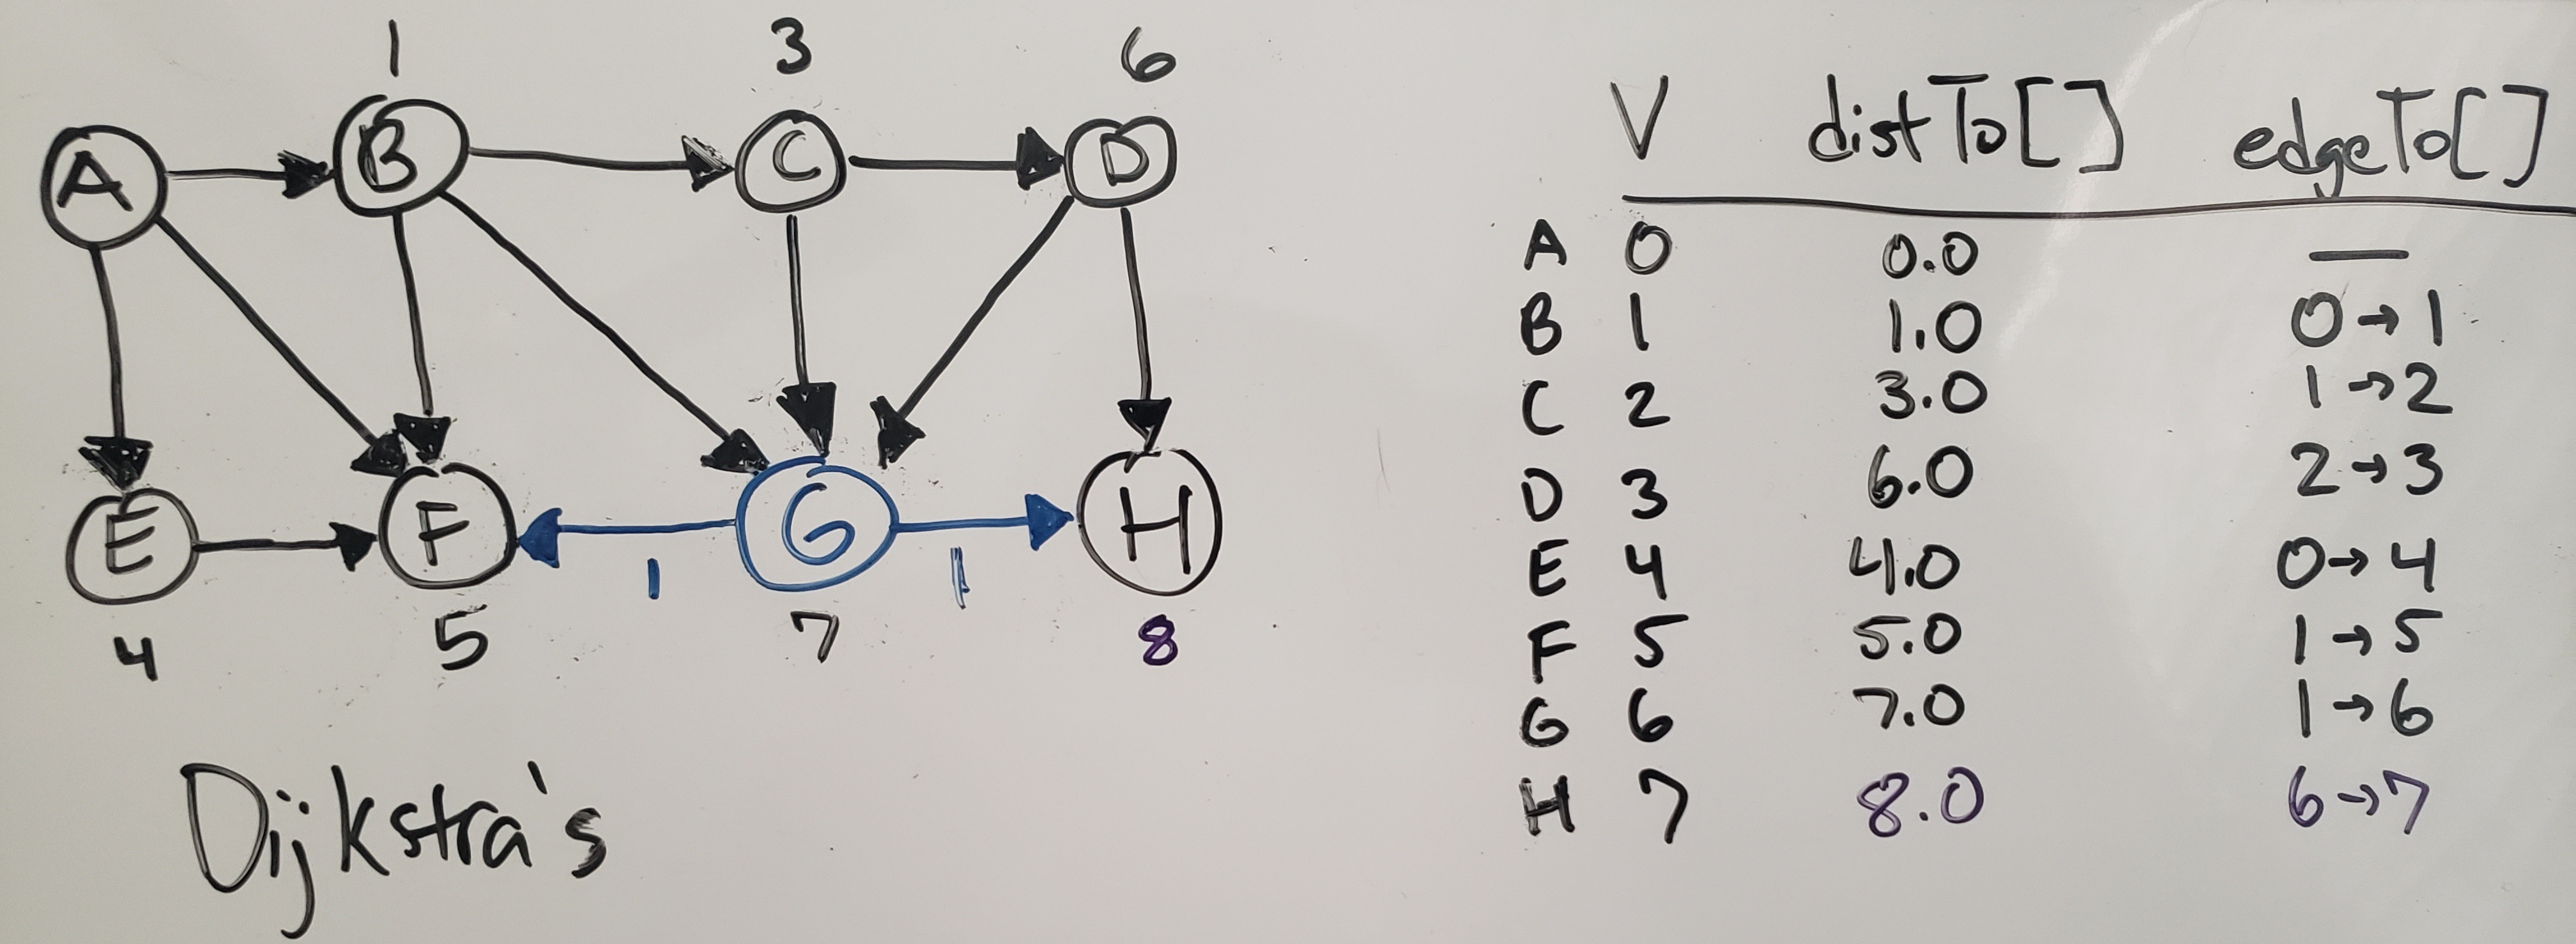 1 3 6
A B C D
E F G H
1 1
4 5 7 8
Dijkstra's
V distTo[] edgeTo[]
A 0 0.0 —
B 1 1.0 0→1
C 2 3.0 1→2
D 3 6.0 2→3
E 4 4.0 0→4
F 5 5.0 1→5
G 6 7.0 1→6
H 7 8.0 6→7